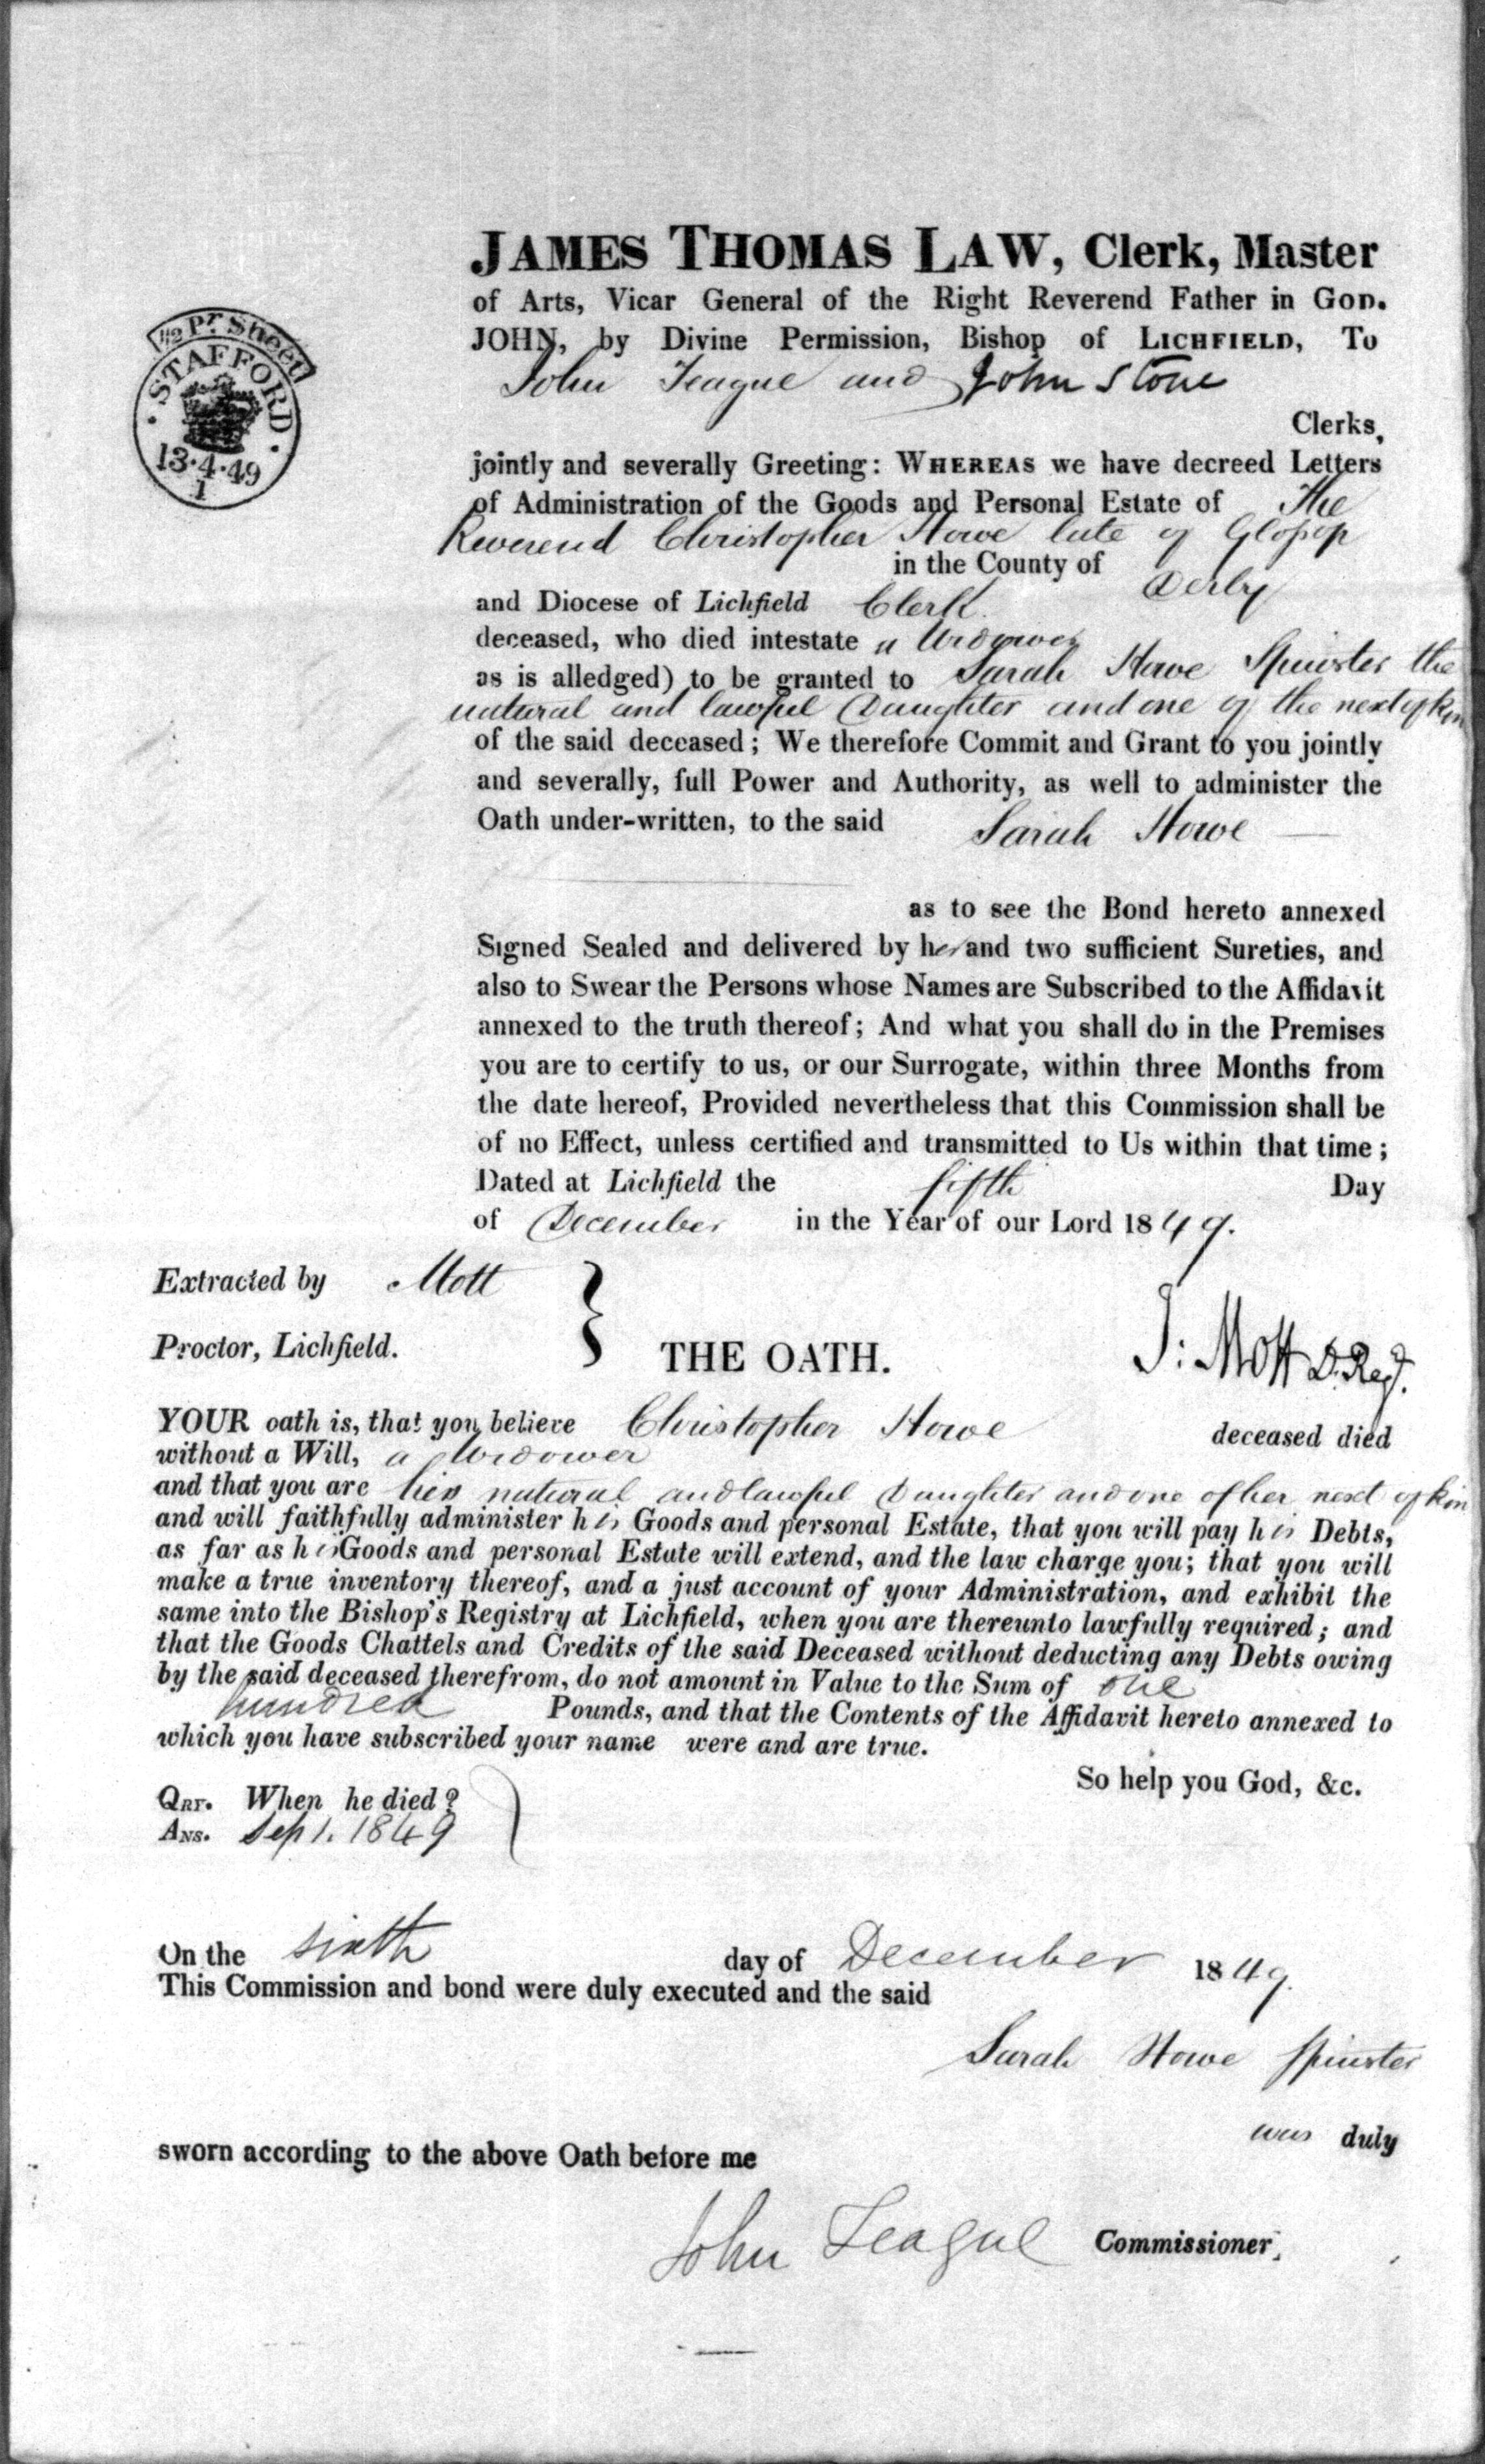 JAMES THOMAS LAW, Clerk, Master
of Arts, Vicar General of the Right Reverend Father in GOD.
JOHN, by Divine Permission, Bishop of LICHFIELD, To
John Teague and John Stone
Clerks,
jointly and severally Greeting: WHEREAS we have decreed Letters
of Administration of the Goods and Personal Estate of The
Reverend Christopher Howe late of Glossop
in the County of Derby
and Diocese of Lichfield Clerk
deceased, who died intestate a Widower
as is alledged) to be granted to Sarah Howe Spinster the
natural and lawful Daughter and one of the next of kin
of the said deceased; We therefore Commit and Grant to you jointly
and severally, full Power and Authority, as well to administer the
Oath under-written, to the said Sarah Howe
as to see the Bond hereto annexed
Signed Sealed and delivered by her and two sufficient Sureties, and
also to Swear the Persons whose Names are Subscribed to the Affidavit
annexed to the truth thereof; And what you shall do in the Premises
you are to certify to us, or our Surrogate, within three Months from
the date hereof, Provided nevertheless that this Commission shall be
of no Effect, unless certified and transmitted to Us within that time;
Dated at Lichfield the fifth Day
of December in the Year of our Lord 1849.
1/2 Pr Sheet
STAFFORD
13.4.49
1
Extracted by Mott
Proctor, Lichfield.
J: Mott D. Reg.
THE OATH.
YOUR oath is, that you believe Christopher Howe deceased died
without a Will, a Widower
and that you are his natural and lawful Daughter and one of her next of kin
and will faithfully administer his Goods and personal Estate, that you will pay his Debts,
as far as his Goods and personal Estate will extend, and the law charge you; that you will
make a true inventory thereof, and a just account of your Administration, and exhibit the
same into the Bishop's Registry at Lichfield, when you are thereunto lawfully required; and
that the Goods Chattels and Credits of the said Deceased without deducting any Debts owing
by the said deceased therefrom, do not amount in Value to the Sum of one
hundred Pounds, and that the Contents of the Affidavit hereto annexed to
which you have subscribed your name were and are true.
So help you God, &c.
QRY. When he died?
ANS. Sep 1. 1849
On the sixth day of December 1849.
This Commission and bond were duly executed and the said
Sarah Howe Spinster
was duly
sworn according to the above Oath before me
John Teague Commissioner.